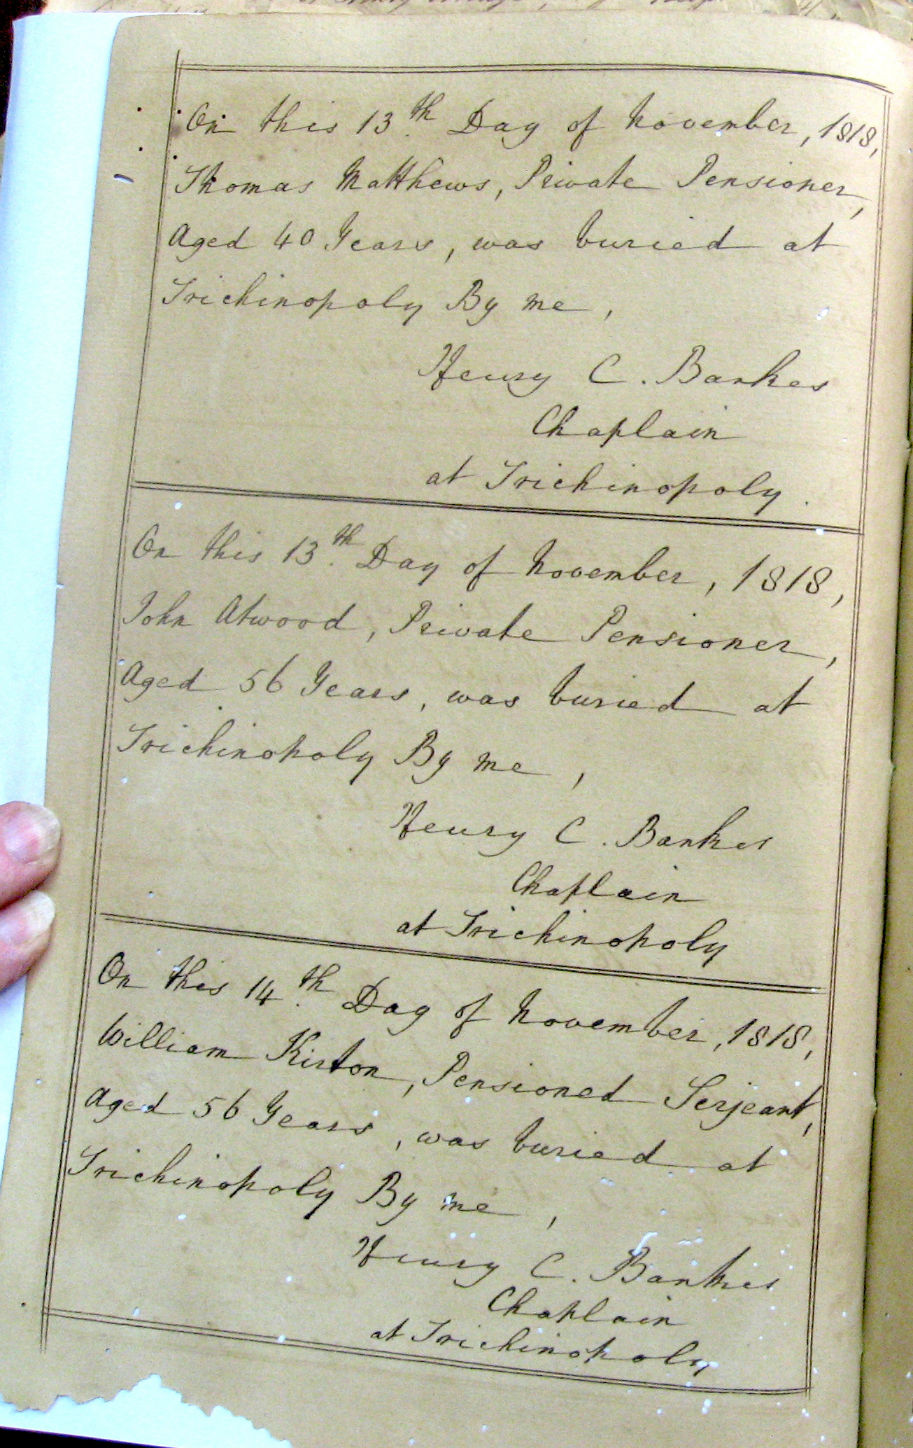 On this 13th Day of November, 1818,
Thomas Matthews, Private Pensioner,
Aged 40 Years, was buried at
Trichinopoly By me,
Henry C. Bankes
Chaplain
at Trichinopoly.
On this 13th Day of November, 1818,
John Atwood, Private Pensioner,
Aged 56 Years, was buried at
Trichinopoly By me,
Henry C. Bankes
Chaplain
at Trichinopoly
On this 14th Day of November, 1818,
William Kirton, Pensioned Serjeant,
Aged 56 Years, was buried at
Trichinopoly By me,
Henry C. Bankes
Chaplain
at Trichinopoly